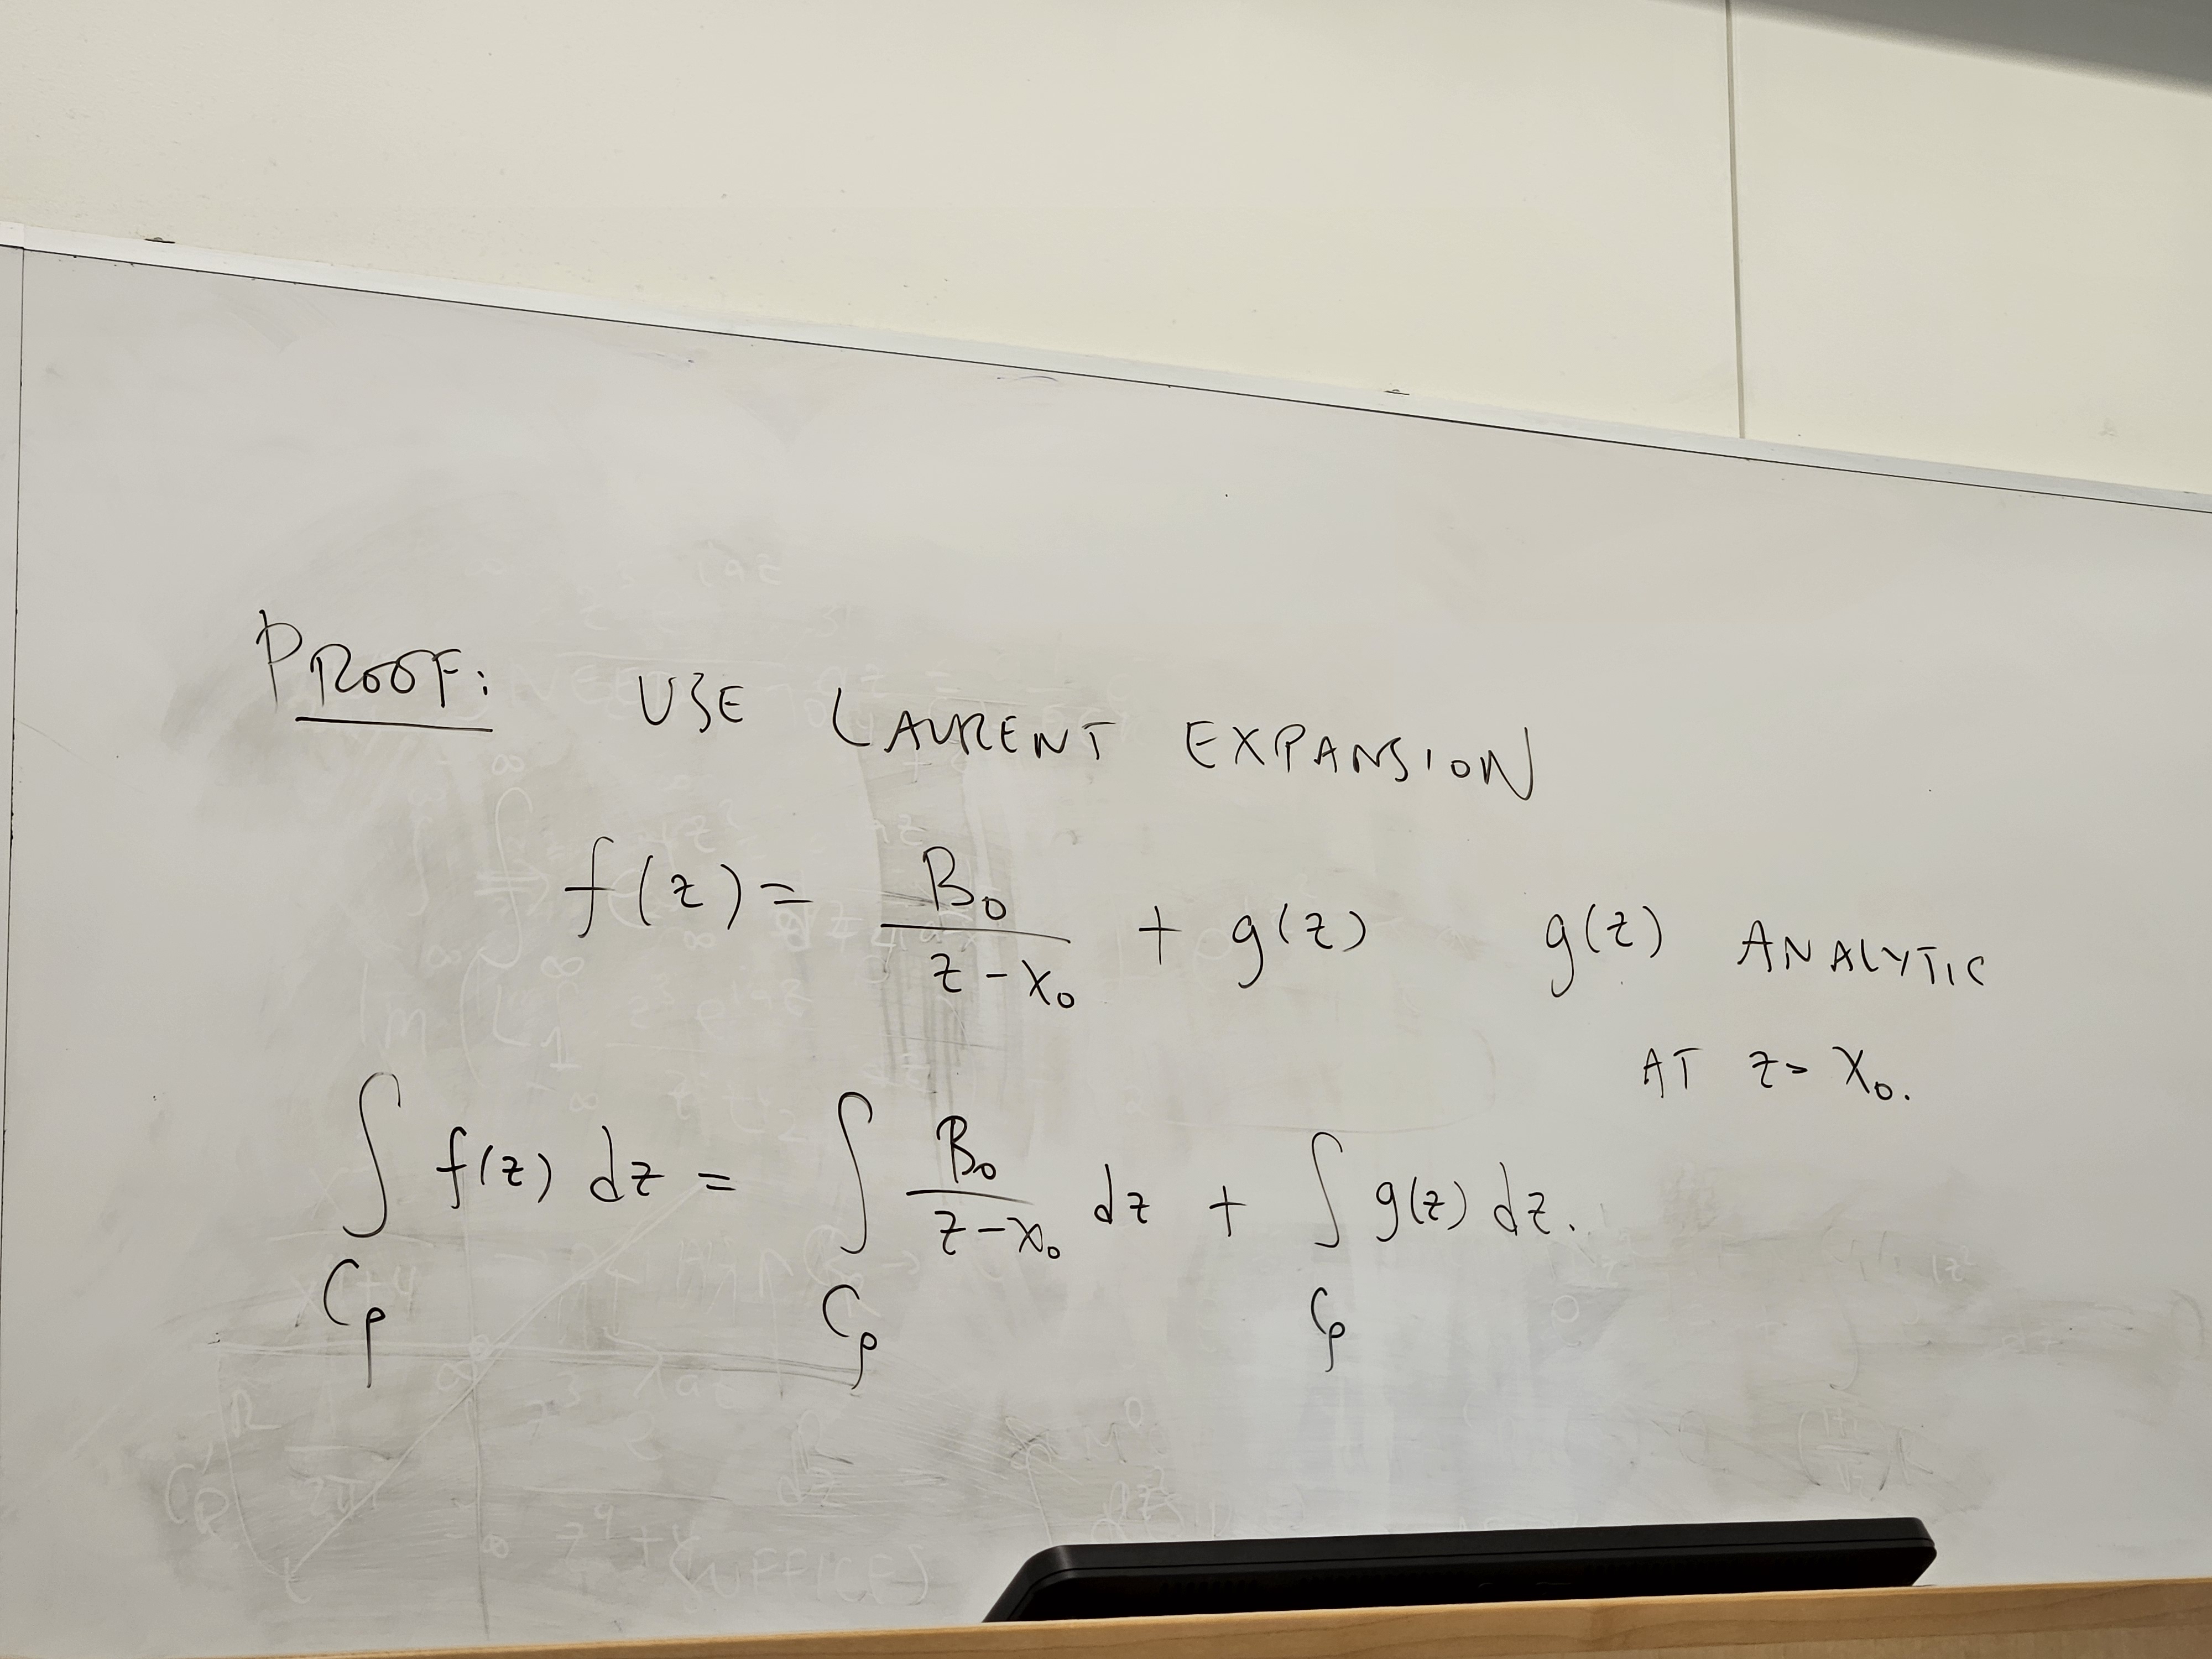 PROOF: USE LAURENT EXPANSION
f(z) = B₀/(z - x₀) + g(z)    g(z) ANALYTIC
AT z = x₀.
∫_{Cρ} f(z) dz = ∫_{Cρ} B₀/(z - x₀) dz + ∫_{Cρ} g(z) dz.